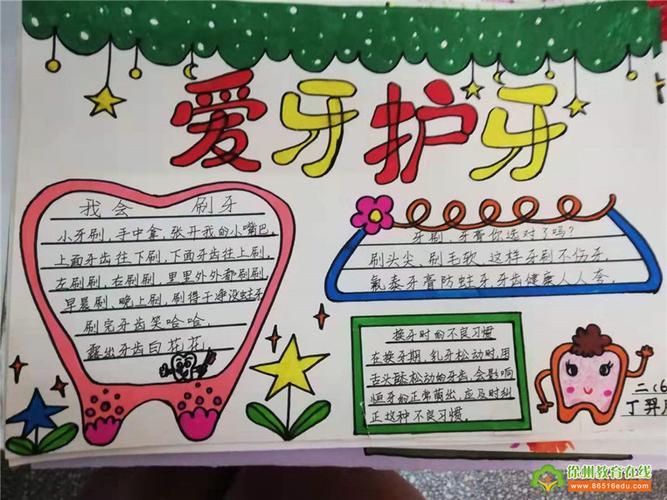 爱牙护牙
我会 刷牙
小牙刷,手中拿,张开我的小嘴巴。
上面牙齿往下刷,下面牙齿往上刷,
左刷刷,右刷刷,里里外外都刷刷,
早晨刷,晚上刷,刷得干净没蛀牙
刷完牙齿笑哈哈,
露出牙齿白花花。
牙刷、牙膏你选对了吗?
刷头尖,刷毛软,这样牙刷不伤牙。
氟泰牙膏防蛀牙,牙齿健康人人夸。
换牙时的不良习惯
在换牙期,乳牙松动时,用
舌头舔松动的牙齿,会影响
恒牙的正常萌出,应及时纠
正这种不良习惯。
二(6
丁羿
徐州教育在线
www.86516edu.com